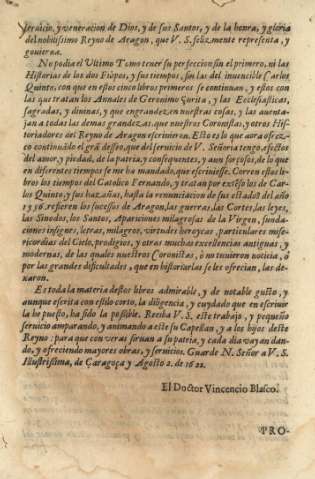 seruicio, y veneracion de Dios, y de sus Santos, y de la honra, y gloria
del nobilissimo Reyno de Aragon, que V. S. feliz mente representa, y
gouierna.
No podia el Vltimo Tomo tener su perfeccion sin el primero, ni las
Historias de los dos Filipos, y sus tiempos, sin las del inuencible Carlos
Quinto, con que en estos cinco libros primeros se continuan, y estos con
las que tratan los Annales de Geronimo Çurita, y las Ecclesiasticas,
sagradas, y diuinas, y que engrandezen nuestras cosas, y las auenta-
jan a todas las demas grandezas, que nuestros Coronistas, y otros His-
toriadores del Reyno de Aragon escriuieron. Esto es lo que aora ofrez-
co continuãdo el grã desseo, que del seruicio de V. Señoria tengo, efectos
del amor, y piedad, de la patria, y consequentes, y aun forçosos, de lo que
en diferentes tiempos se me ha mandado, que escriuiesse. Corren estos li-
bros los tiempos del Catolico Fernando, y tratan por extẽso los de Car-
los Quinto, y sus hazañas, hasta la renunciacion de sus estados del año
1556. refieren los sucessos de Aragon, las guerras, las Cortes, las leyes,
las Sinodos, los Santos, Apariciones milagrosas de la Virgen, funda-
ciones insignes, letras, milagros, virtudes heroycas, particulares mise-
ricordias del Cielo, prodigios, y otras muchas excellencias antiguas, y
modernas, de las quales nuestros Coronistas, ò no tuuieron noticia, ò
por las grandes dificultades, que en historiarlas se les ofrecian, las de-
xaron.
Es toda la materia destos libros admirable, y de notable gusto, y
aunque escrita con estilo corto, la diligencia, y cuydado que en escriuir
la he puesto, ha sido la possible. Reciba V. S. este trabajo, y pequeño
seruicio amparando, y animando a este su Capellan, y a los hijos deste
Reyno: para que con veras siruan a su patria, y cada dia vayan dan-
do, y ofreciendo mayores obras, y seruicios. Guarde N. Señor a V. S.
Illustrissima, de Caragoça y Agosto 2. de 1622.
El Doctor Vincencio Blasco.
PRO-